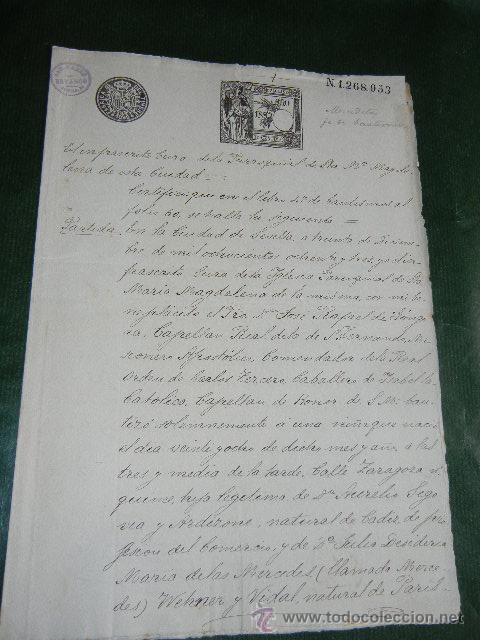 N.1.268.953
El infrascrito Cura de la Parroquial de Sta. Mª Magda-
lena de esta Ciudad =
Certifico: que en el libro de bautismos al
folio 60, se halla la siguiente =
Partida. En la Ciudad de Sevilla, a treinta de Diciem-
bre de mil ochocientos ochenta y tres, yo el in-
frascrito Cura de la Iglesia Parroquial de Sta.
María Magdalena de la misma, con mi be-
neplácito el Sro. Dn. José Rafael de Góngo-
ra, Capellan Real de la de Sn. Fernando, Mi-
sionero Apostólico, Comendador de la Real
Orden de Carlos Tercero, Caballero de Isabel la
Catolica, Capellan de honor de S. M. bau-
tizó solemnemente a una niña que nació
el dia veinte y ocho de dicho mes y año, a las
tres y media de la tarde, Calle Zaragoza nº
quince, hija legitima de Dn. Aurelio Sego-
via y Ardizone, natural de Cadiz de pro-
fesion del Comercio, y de Dª Julia Desideria
Maria de las Mercedes (llamada Merce-
des) Wehner y Vidal, natural de Paris
todocoleccion.net